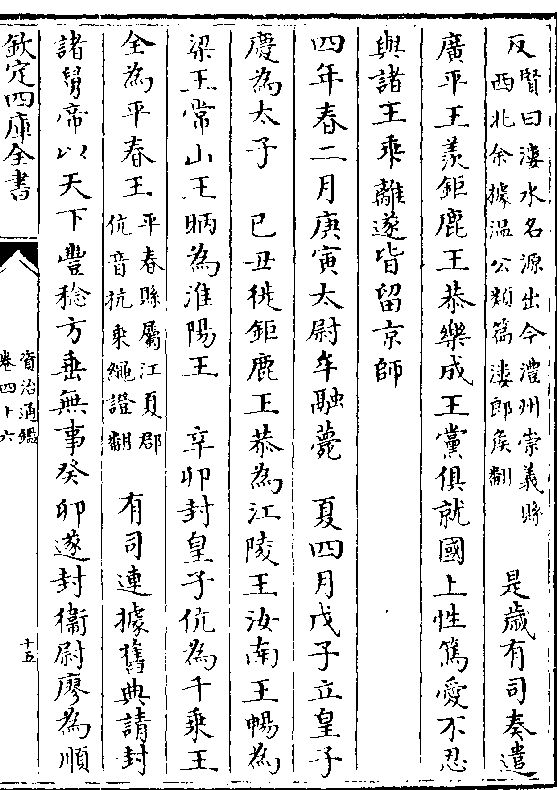 反賢曰漊水名源出今澧州崇義縣西北余據温公類篇漊郎侯翻 是歲有司奏遣
廣平王羨鉅鹿王恭樂成王黨俱就國上性篤愛不忍
與諸王乖離遂皆留京師
四年春二月庚寅太尉牟融薨 夏四月戊子立皇子
慶為太子 已丑徙鉅鹿王恭為江陵王汝南王暢為
梁王常山王昞為淮陽王 辛卯封皇子伉為千乘王
全為平春王平春縣屬江夏郡伉音抗乘繩證翻 有司連據舊典請封
諸舅帝以天下豐稔方垂無事癸卯遂封衞尉廖為順
欽定四庫全書
資治通鑑
卷四十六
十五